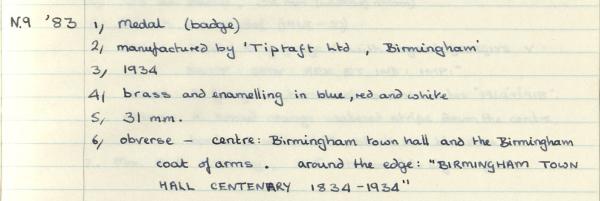 N.9 '83 1, Medal (badge)
2, manufactured by 'Tiptaft Ltd, Birmingham'
3, 1934
4, brass and enamelling in blue, red and white
5, 31 mm.
6, obverse – centre: Birmingham town hall and the Birmingham
coat of arms. around the edge: "BIRMINGHAM TOWN
HALL CENTENARY 1834-1934"